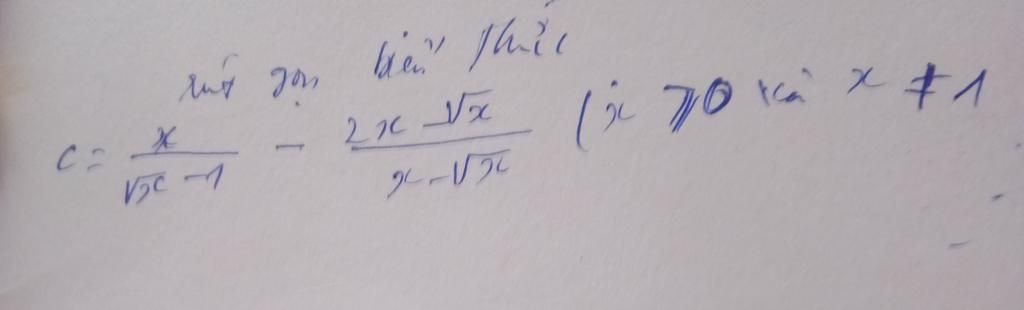 rút gọn biểu thức
C = \frac{x}{\sqrt{x} - 1} - \frac{2x - \sqrt{x}}{x - \sqrt{x}} (x ⩾ 0 và x ≠ 1